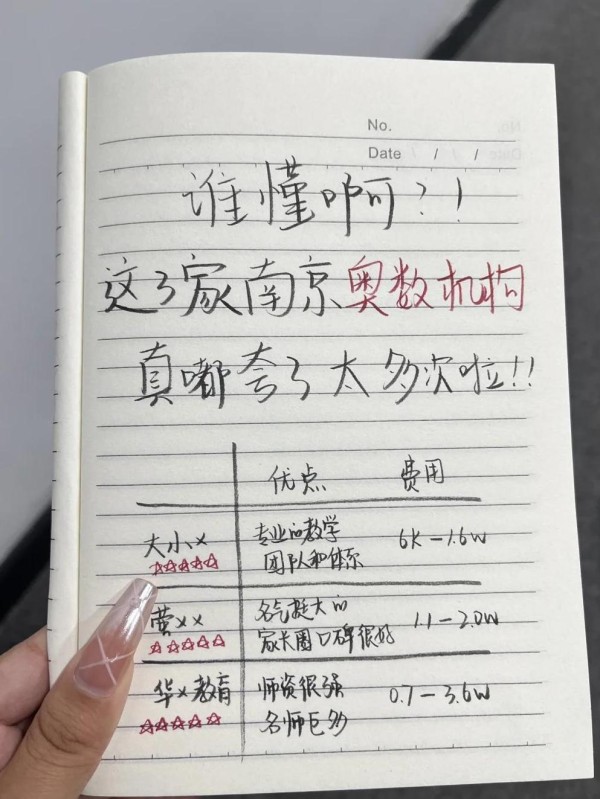 No.
Date / / /
谁懂啊?!
这3家南京奥数机构
真嘟夸了太多次啦!!
优点 费用
大小× 专业的教学 6K-1.6W
☆☆☆☆☆ 团队和体系
×× 名气挺大的 1.1-2.0W
☆☆☆☆☆ 家长圈口碑很好
华×教育 师资很强 0.7-3.6W
☆☆☆☆☆ 名师巨多